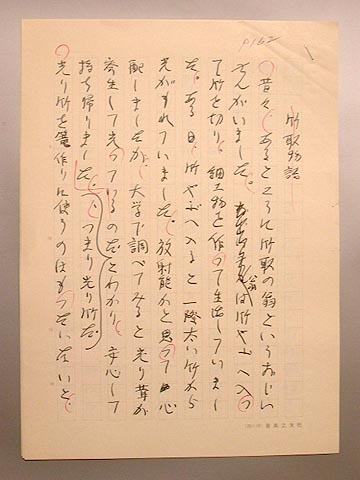 P162
竹取物語
昔々、あるところに竹取の翁というおじい
さんがいました。翁は竹やぶへ入っ
て竹を切り、細工物を作って生活していまし
た。ある日、竹やぶへ入ると一際太い竹から
光がもれていました。放射能かと思って心
配しましたが、大学で調べてみると光り茸が
寄生して光っているのだとわかり、安心して
持ち帰りました。つまり光り竹だ。
光り竹を籠作りに使うのはもったいないと、
音楽之友社